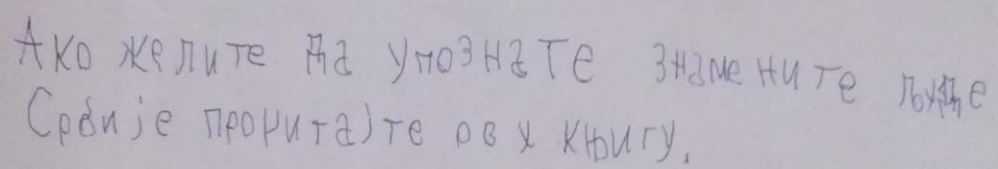 Ако желите да упознате знамените људе
Србије прочитајте ову књигу.